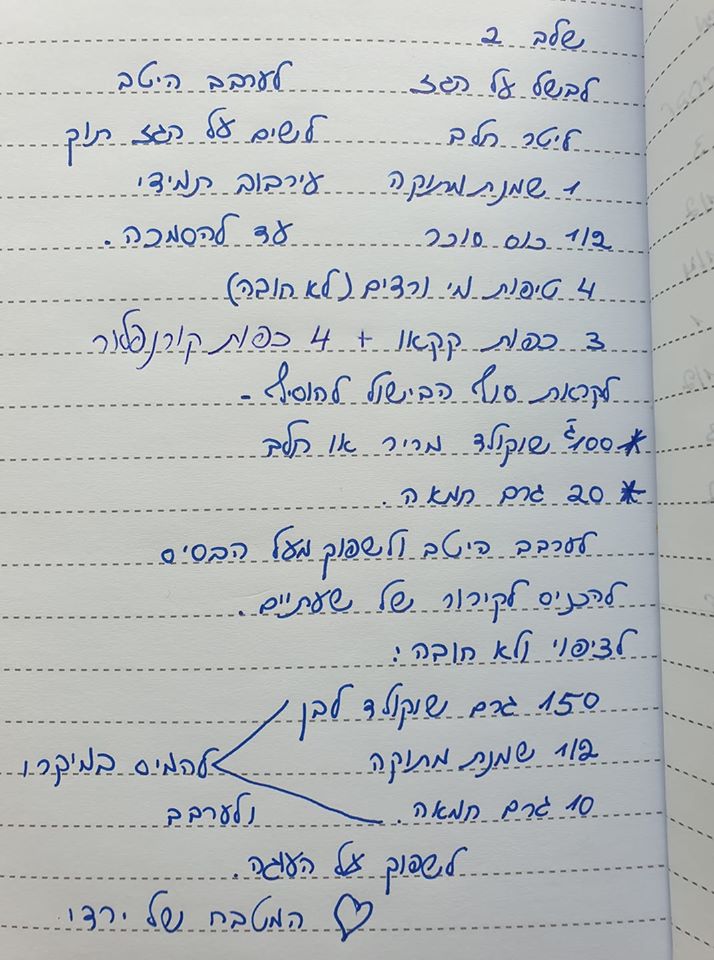 שלב 2
לבשל על הגז לערבב היטב
ליטר חלב לשים על הגז תוק
1 שמנת מתוקה עירבוב תמידי
1/2 כוס סוכר עד להסמכה.
4 טיפות מי ורדים (לא חובה)
3 כפות קקאו + 4 כפות קורנפלור
לקראת סוף הבישול להוסיף -
* 100ג שוקולד מריר או חלב
* 20 גרם חמאה.
לערבב היטב ולשפוק מעל הבסיס
להכניס לקירור של שעתיים.
לציפוי ולא חובה:
150 גרם שוקולד לבן
1/2 שמנת מתוקה להמיס במיקרו
10 גרם חמאה. ולערבב
לשפוק על העוגה.
♡ המטבח של ירדי